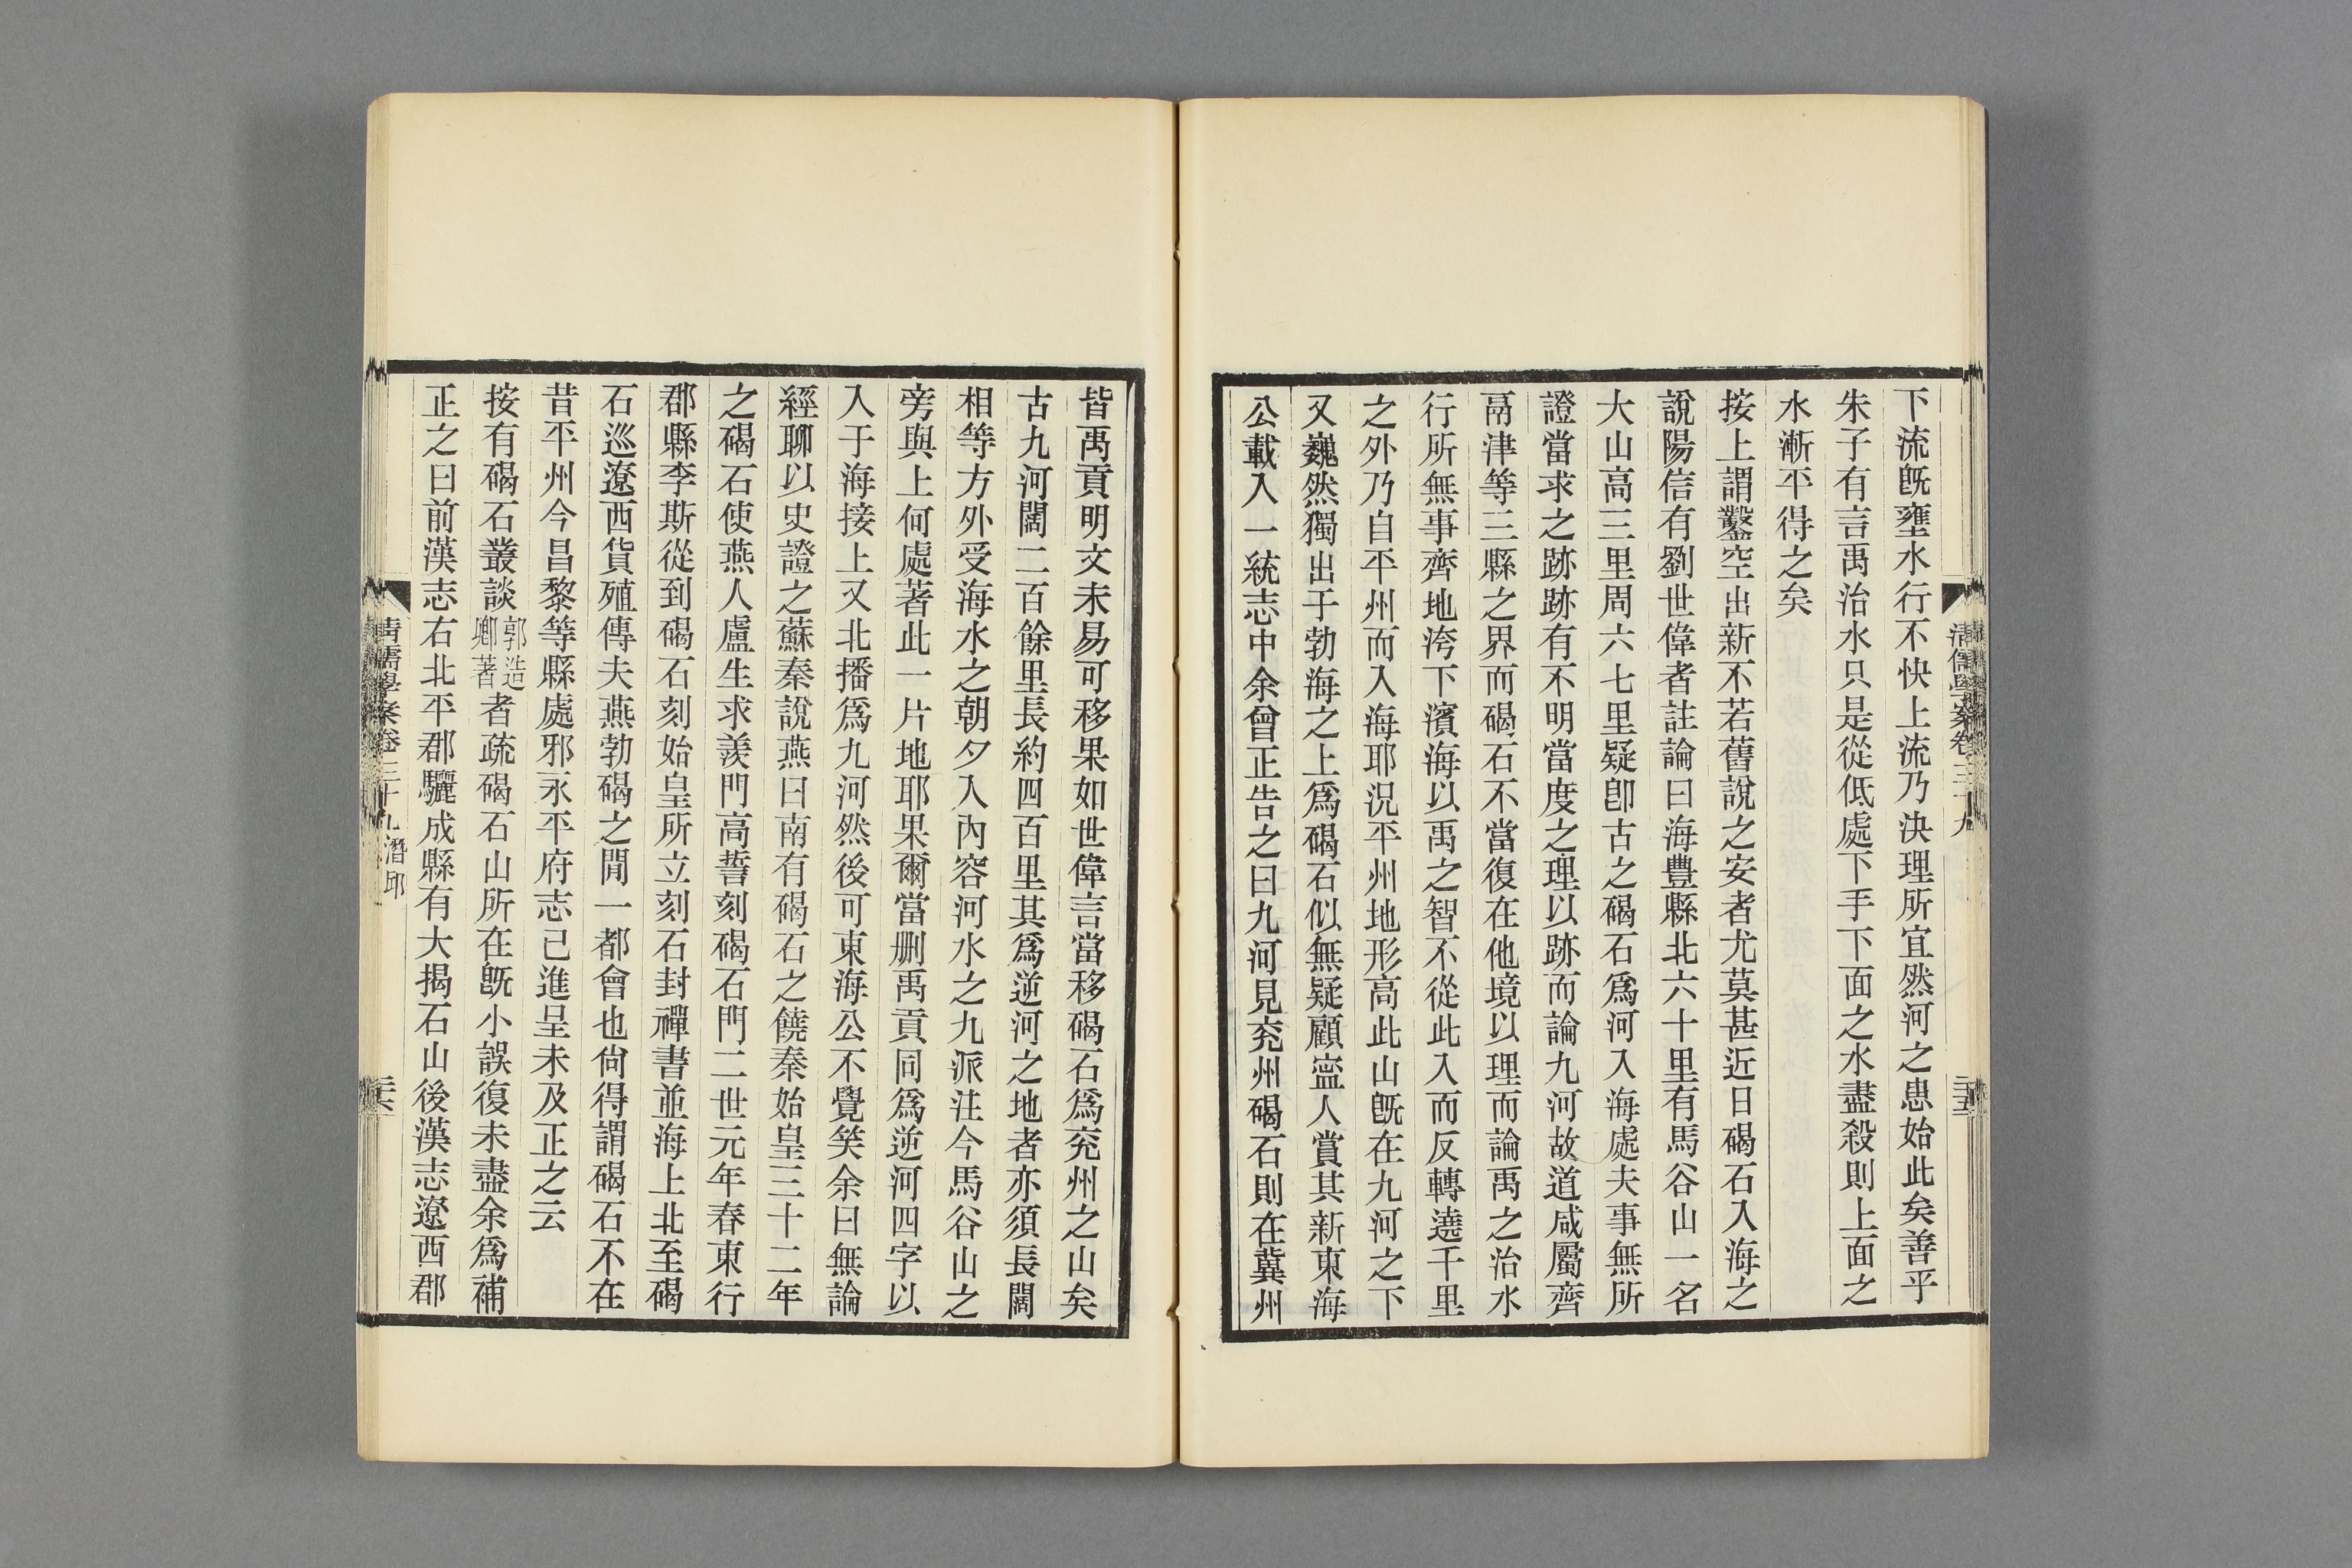 下流旣壅水行不快上流乃決理所宜然河之患始此矣善乎
朱子有言禹治水只是從低處下手下面之水盡殺則上面之
水漸平得之矣
按上謂鑿空出新不若舊說之安者尤莫甚近日碣石入海之
說陽信有劉世偉者註論曰海豐縣北六十里有馬谷山一名
大山高三里周六七里疑卽古之碣石爲河入海處夫事無所
證當求之跡跡有不明當度之理以跡而論九河故道咸屬齊
鬲津等三縣之界而碣石不當復在他境以理而論禹之治水
行所無事齊地洿下濱海以禹之智不從此入而反轉遶千里
之外乃自平州而入海耶況平州地形高此山旣在九河之下
又巍然獨出于勃海之上爲碣石似無疑顧寍人賞其新東海
公載入一統志中余曾正告之曰九河見兖州碣石則在冀州
清儒學案卷三十九
三十五
皆禹貢明文未易可移果如世偉言當移碣石爲兖州之山矣
古九河闊二百餘里長約四百里其爲逆河之地者亦須長闊
相等方外受海水之朝夕入內容河水之九派注今馬谷山之
旁與上何處著此一片地耶果爾當删禹貢同爲逆河四字以
入于海接上又北播爲九河然後可東海公不覺笑余曰無論
經聊以史證之蘇秦說燕曰南有碣石之饒秦始皇三十二年
之碣石使燕人盧生求羨門高誓刻碣石門二世元年春東行
郡縣李斯從到碣石刻始皇所立刻石封禪書並海上北至碣
石巡遼西貨殖傳夫燕勃碣之閒一都會也尙得謂碣石不在
昔平州今昌黎等縣處邪永平府志已進呈未及正之云
按有碣石叢談郭造卿著者疏碣石山所在旣小誤復未盡余爲補
正之曰前漢志右北平郡驪成縣有大揭石山後漢志遼西郡
清儒學案卷三十九 潛邱
三十六